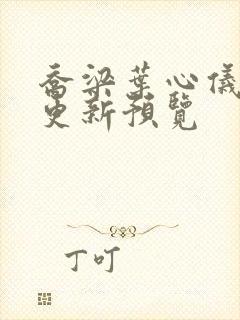 喬梁葉心儀
更新預覽
丁叮